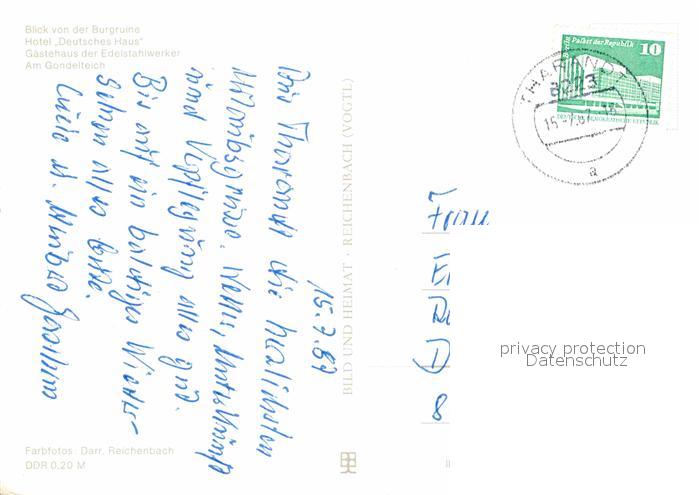 Blick von der Burgruine
Hotel „Deutsches Haus"
Gästehaus der Edelstahlwerker
Am Gondelteich
15.7.87
Aus Tharandt die herzlichsten
Urlaubsgrüße. Wetter, Unterkunft
und Verpflegung alles gut.
Bis auf ein baldiges Wieder-
sehen alles Gute.
BILD UND HEIMAT · REICHENBACH (VOGTL)
Farbfotos: Darr, Reichenbach
DDR 0,20 M
Palast der Republik
10
DEUTSCHE DEMOKRATISCHE REPUBLIK
THARANDT
8223
a
Frau
8
privacy protection
Datenschutz